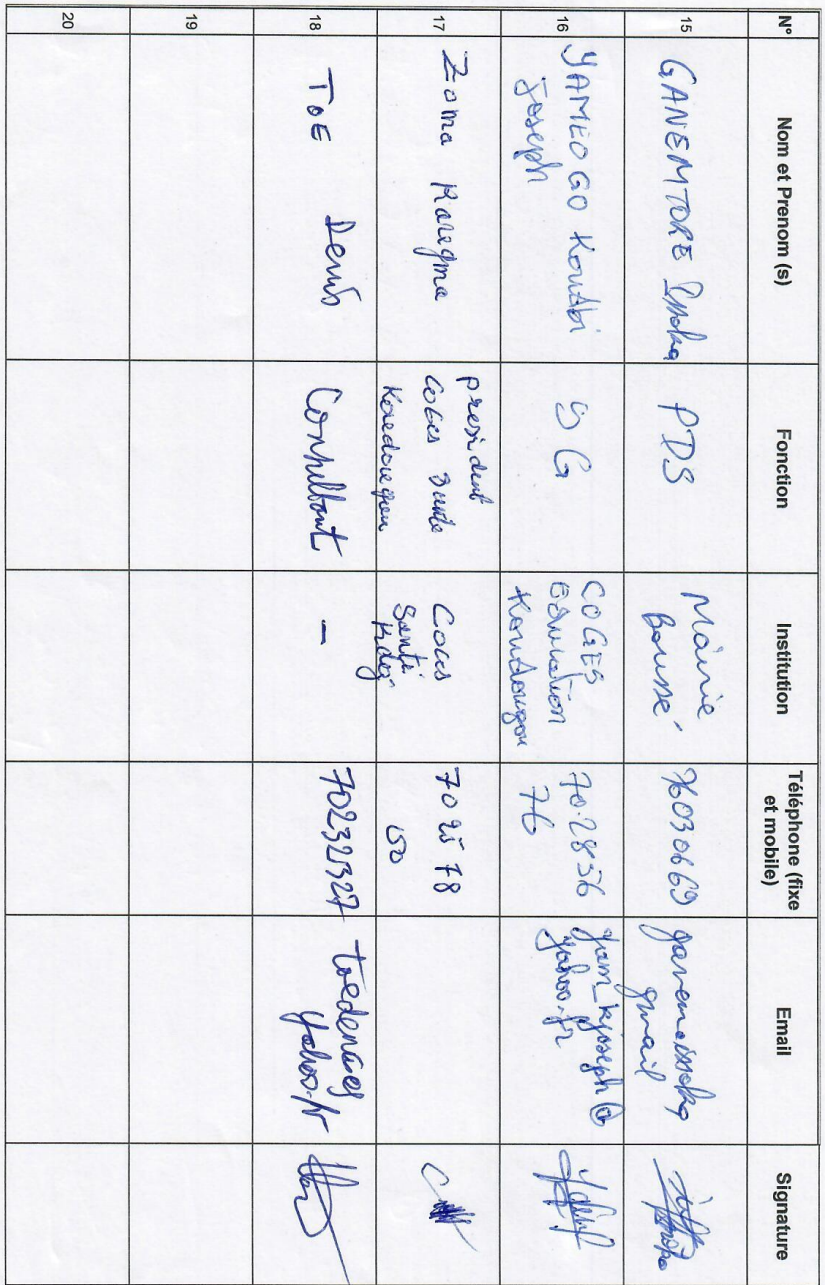 N° Nom et Prenom (s) Fonction Institution Téléphone (fixe et mobile) Email Signature
15 GANEMTORE Issaka PDS Mairie Boussé 76030669 gmail
16 YAMEOGO Koudbi Joseph SG COGES Education Koudougou 70285676 yam_kjoseph@yahoo.fr
17 Zoma président COGES COGES Santé Kdg 70 25 78
18 TOE Denis Consultant - 70232327 yahoo.fr
19
20